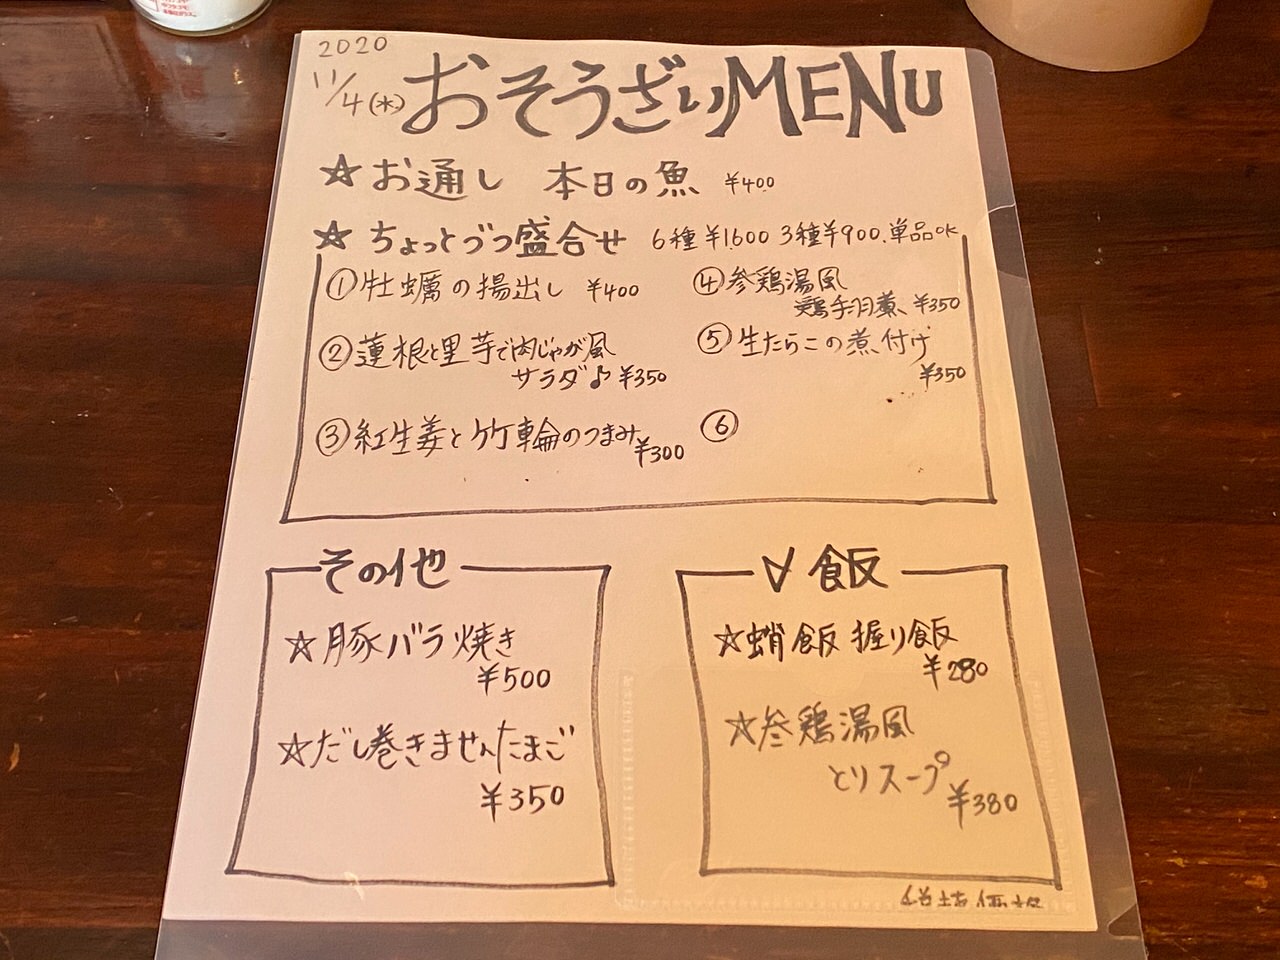 2020
11/4(水) おそうざいMENU
☆お通し 本日の魚 ¥400
☆ちょっとづつ盛合せ 6種¥1,600 3種¥900.単品ok
①牡蠣の揚出し ¥400
②蓮根と里芋で肉じゃが風
サラダ♪ ¥350
③紅生姜と竹輪のつまみ ¥300
④参鶏湯風
鶏手羽煮、¥350
⑤生たらこの煮付け
¥350
⑥
その他
☆豚バラ焼き
¥500
☆だし巻きませんたまご
¥350
飯
☆蛸飯 握り飯
¥280
☆参鶏湯風
とりスープ
¥380